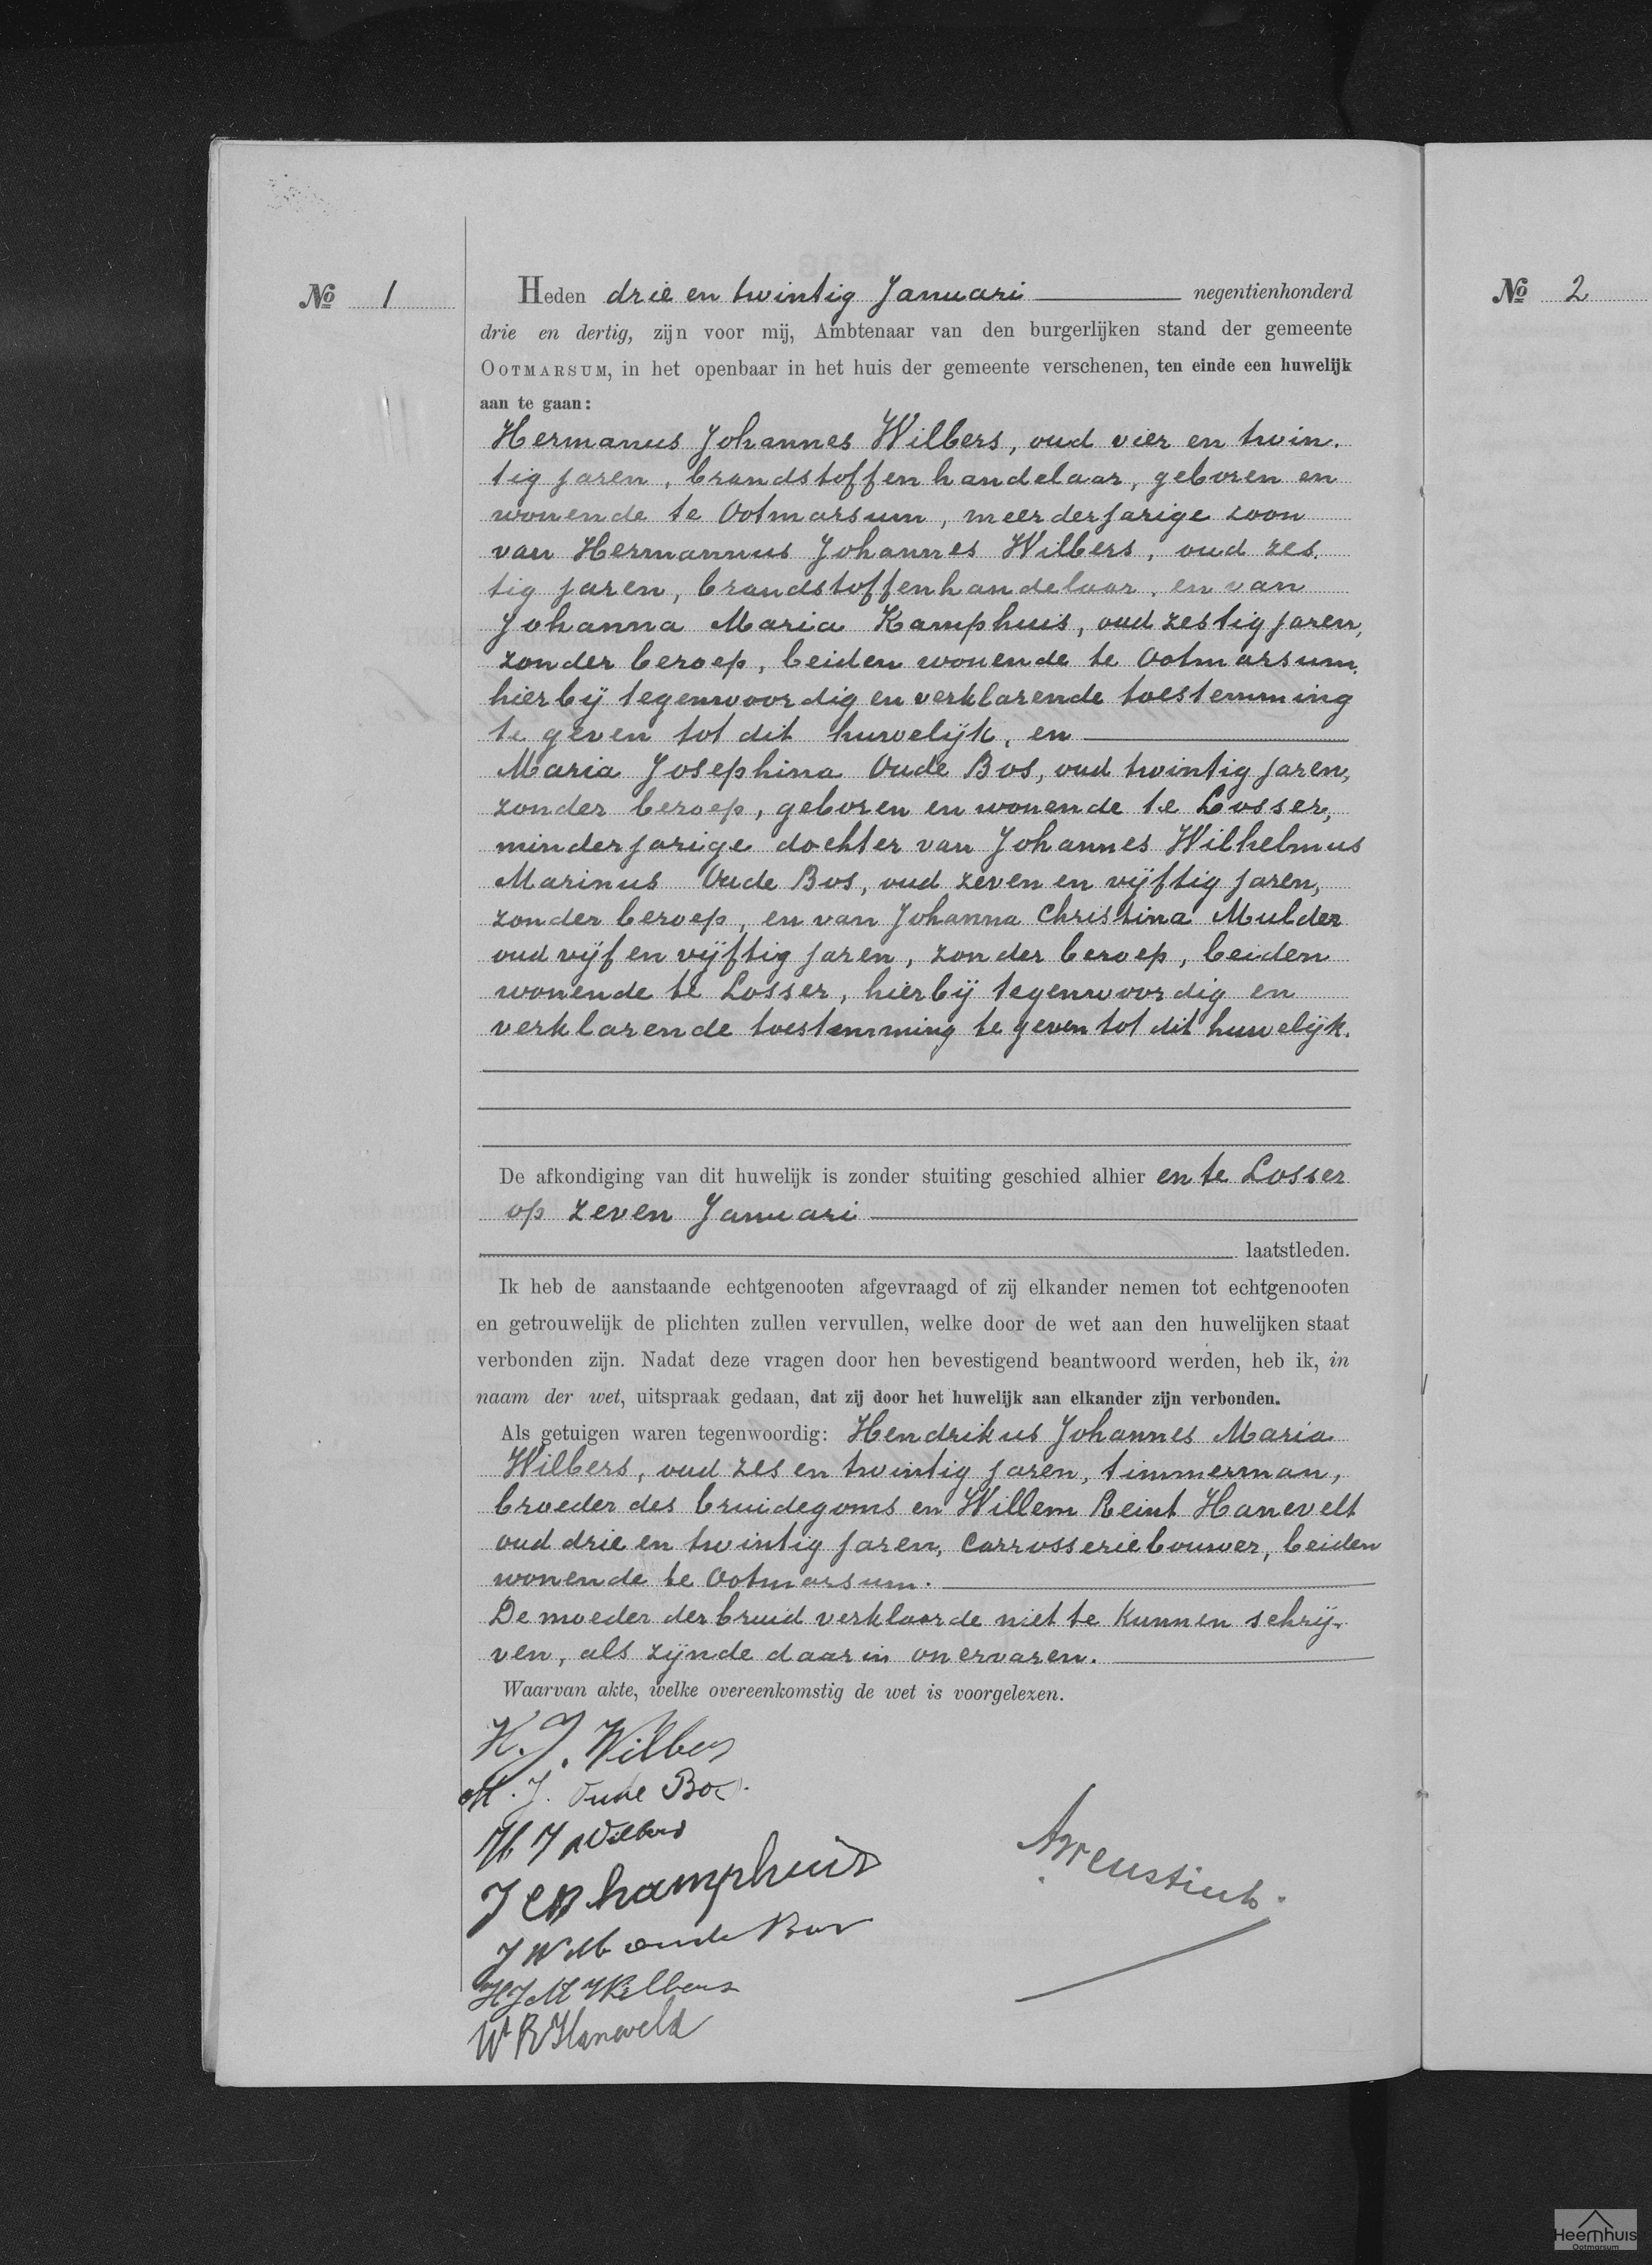 No 1
Heden drie en twintig Januari negentienhonderd
drie en dertig, zijn voor mij, Ambtenaar van den burgerlijken stand der gemeente
OOTMARSUM, in het openbaar in het huis der gemeente verschenen, ten einde een huwelijk
aan te gaan:
Hermanus Johannes Wilbers, oud vier en twin-
tig jaren, brandstoffenhandelaar, geboren en
wonende te Ootmarsum, meerderjarige zoon
van Hermannus Johannes Wilbers, oud zes-
tig jaren, brandstoffenhandelaar, en van
Johanna Maria Kamphuis, oud zestig jaren,
zonder beroep, beiden wonende te Ootmarsum,
hierbij tegenwoordig en verklarende toestemming
te geven tot dit huwelijk, en
Maria Josephina Oude Bos, oud twintig jaren,
zonder beroep, geboren en wonende te Losser,
minderjarige dochter van Johannes Wilhelmus
Marinus Oude Bos, oud zeven en vijftig jaren,
zonder beroep, en van Johanna Christina Mulder
oud vijf en vijftig jaren, zonder beroep, beiden
wonende te Losser, hierbij tegenwoordig en
verklarende toestemming te geven tot dit huwelijk.
De afkondiging van dit huwelijk is zonder stuiting geschied alhier en te Losser
op zeven Januari
laatstleden.
Ik heb de aanstaande echtgenooten afgevraagd of zij elkander nemen tot echtgenooten
en getrouwelijk de plichten zullen vervullen, welke door de wet aan den huwelijken staat
verbonden zijn. Nadat deze vragen door hen bevestigend beantwoord werden, heb ik, in
naam der wet, uitspraak gedaan, dat zij door het huwelijk aan elkander zijn verbonden.
Als getuigen waren tegenwoordig: Hendrikus Johannes Maria
Wilbers, oud zes en twintig jaren, timmerman,
broeder des bruidegoms en Willem Reint Hanevelt
oud drie en twintig jaren, carrosseriebouwer, beiden
wonende te Ootmarsum.
De moeder der bruid verklaarde niet te kunnen schrij-
ven, als zijnde daarin onervaren.
Waarvan akte, welke overeenkomstig de wet is voorgelezen.
H. J. Wilbers
M. J. Oude Bos.
H J Wilbers
J M Kamphuis
J W M oude Bos
H J M Wilbers
W R Haneveld
No 2
Heemhuis
Ootmarsum